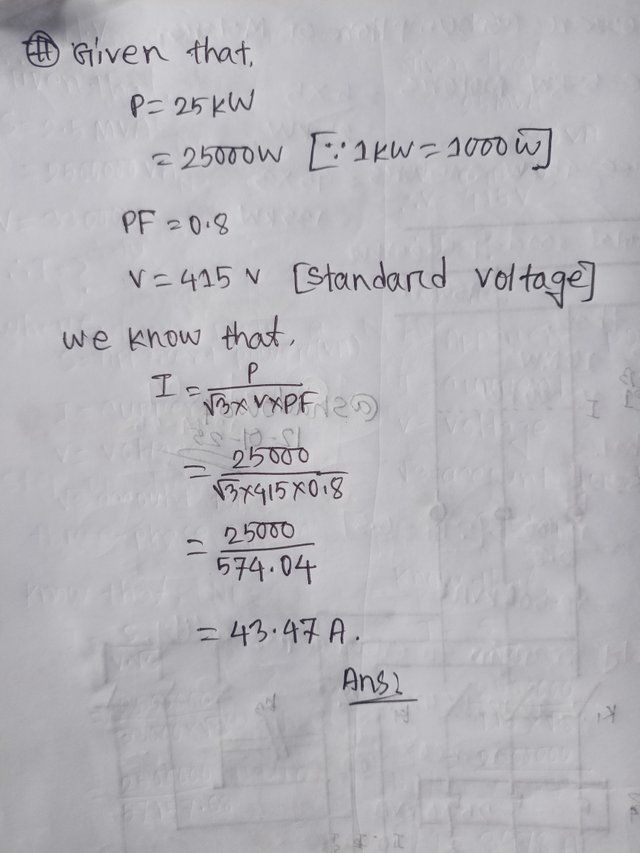 # Given that,
P = 25 kW
= 25000W [∵ 1 kW = 1000 W]
PF = 0.8
V = 415 V [Standard voltage]
we know that,
I = P / √3 × V × PF
= 25000 / √3 × 415 × 0.8
= 25000 / 574.04
= 43.47 A.
Ans: